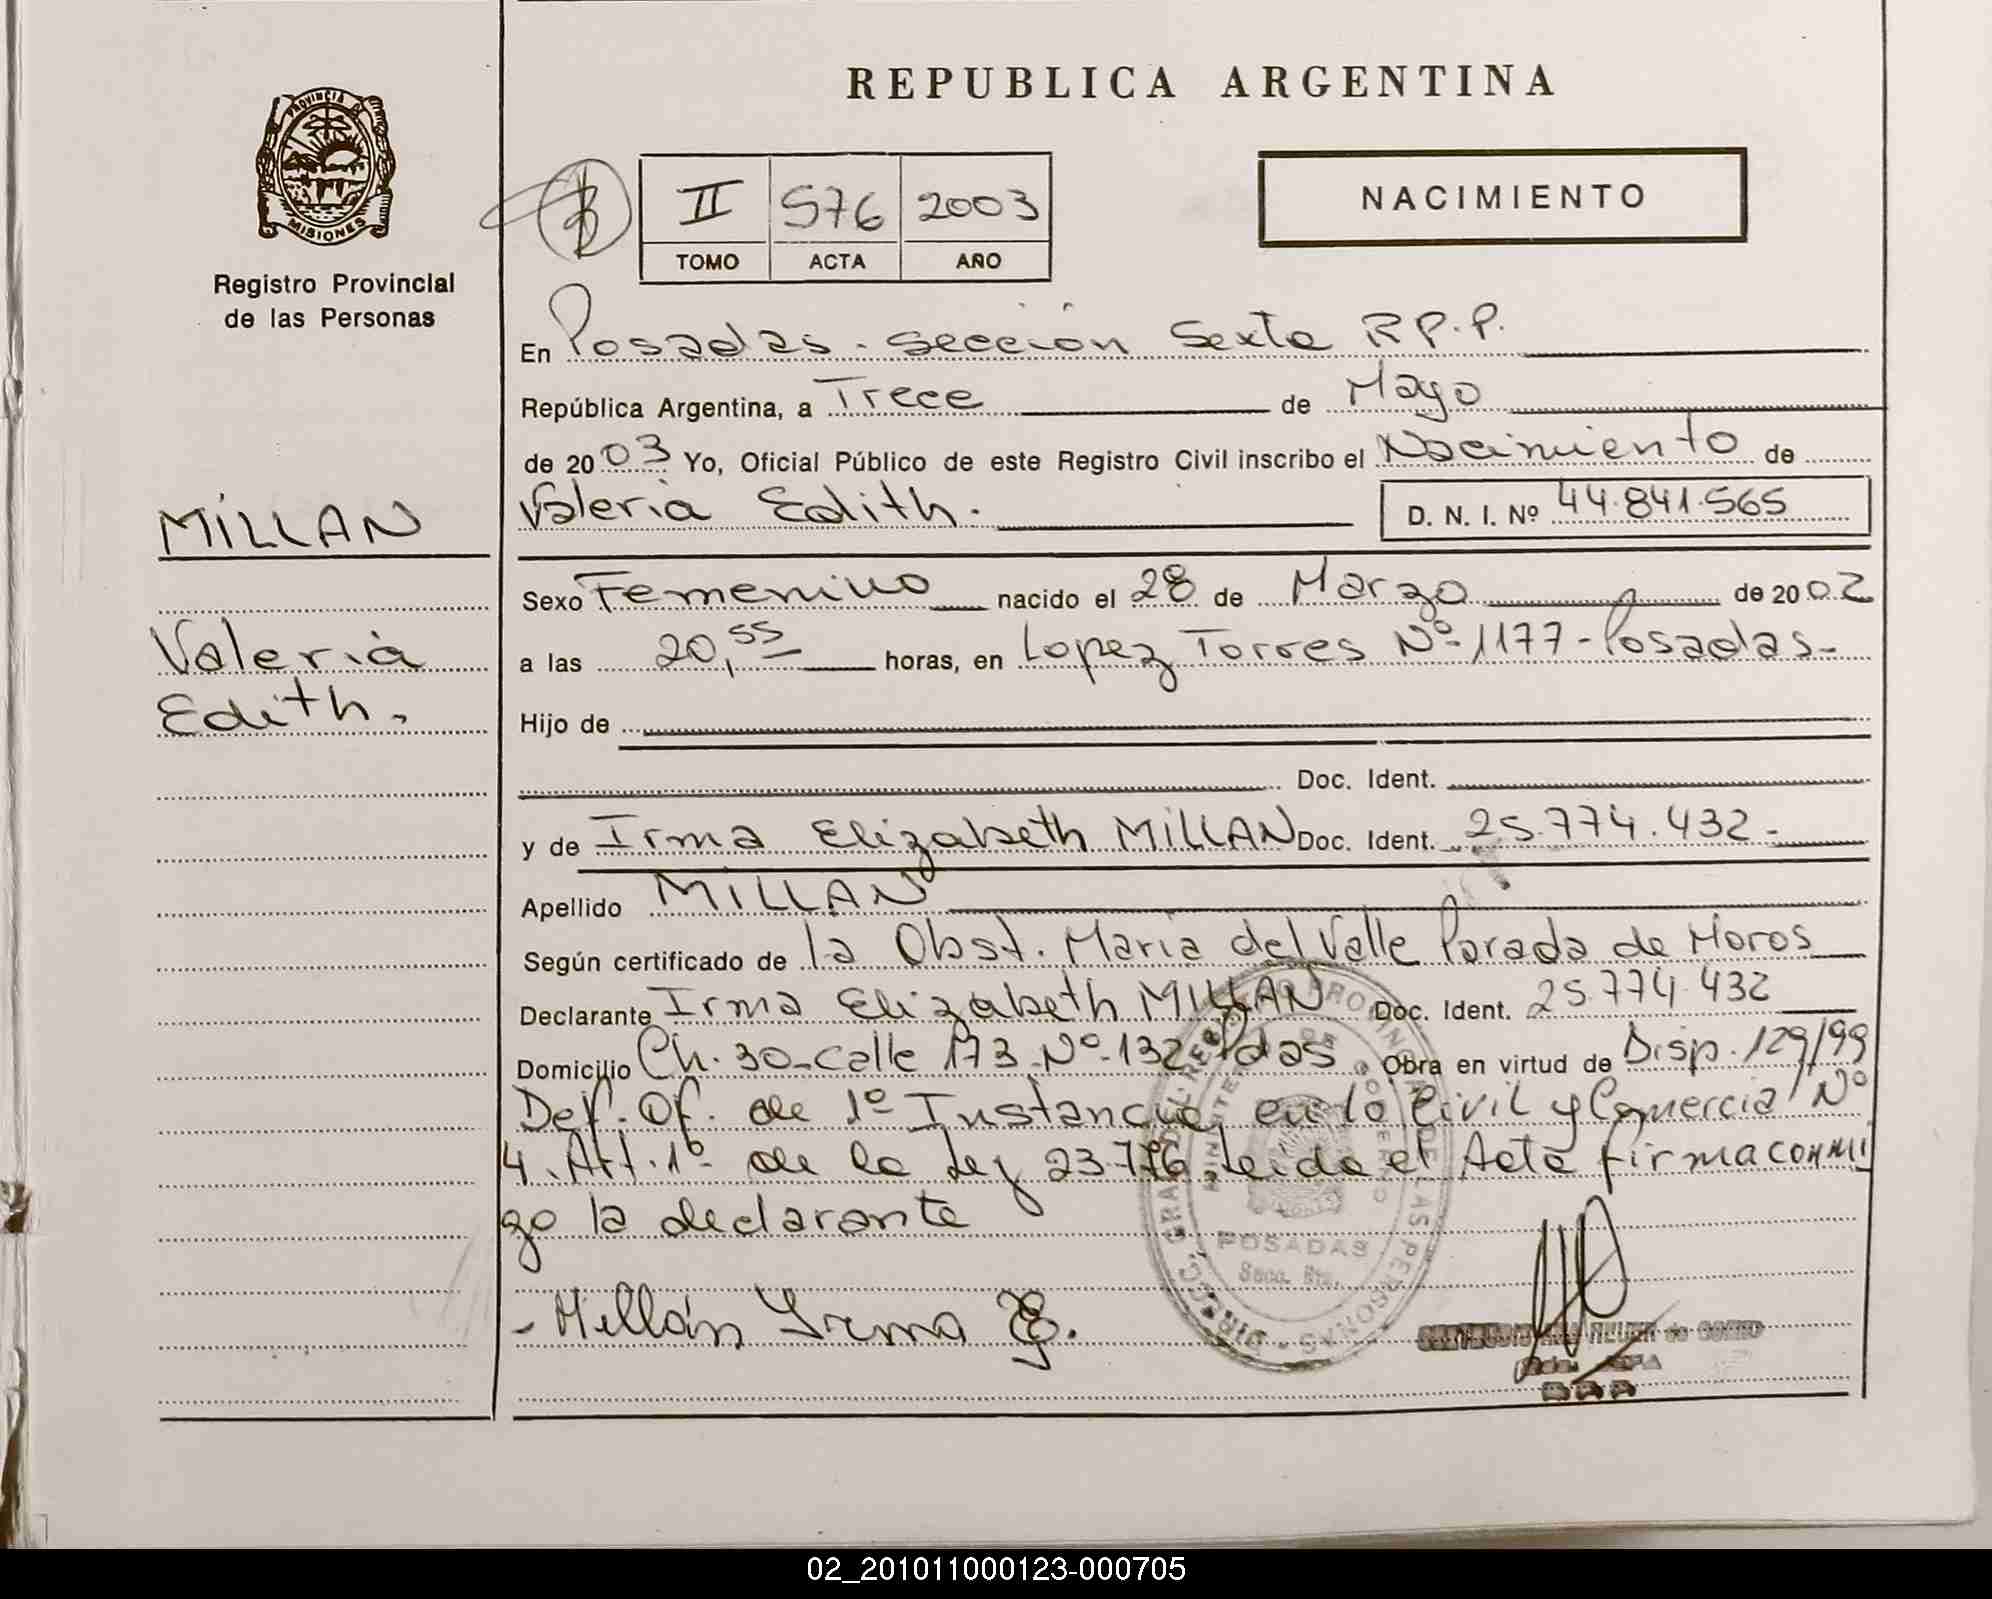 REPUBLICA ARGENTINA
PROVINCIA DE
MISIONES
Registro Provincial
de las Personas
II 576 2003
TOMO ACTA AÑO
NACIMIENTO
En Posadas - Sección Sexta R.P.P.
República Argentina, a Trece de Mayo
de 2003 Yo, Oficial Público de este Registro Civil inscribo el Nacimiento de
Valeria Edith. D. N. I. Nº 44.841.565
MILLAN
Valeria
Edith.
Sexo Femenino nacido el 28 de Marzo de 2002
a las 20,55 horas, en Lopez Torres Nº 1177 - Posadas -
Hijo de
Doc. Ident.
y de Irma Elizabeth MILLAN Doc. Ident. 25.774.432 -
Apellido MILLAN
Según certificado de la Obst. Maria del Valle Parada de Moros
Declarante Irma Elizabeth MILLAN Doc. Ident. 25.774.432
Domicilio Ch. 30 - Calle 173 - Nº 132 Pdas Obra en virtud de Disp. 129/99
Def. Of. de 1º Instancia en lo Civil y Comercial Nº
4. Art. 1º de la Ley 23.776, leida el Acta firma conmi
go la declarante
- Millán Irma E.
POSADAS
02_201011000123-000705